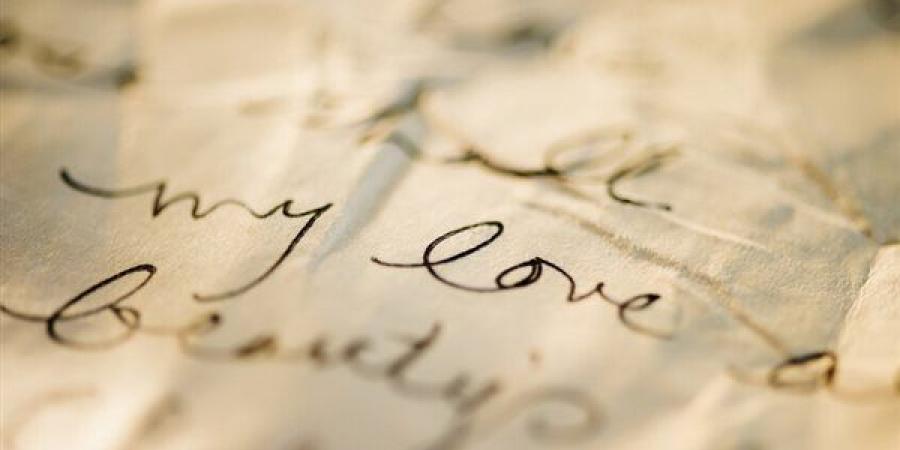 all
my love
beauty